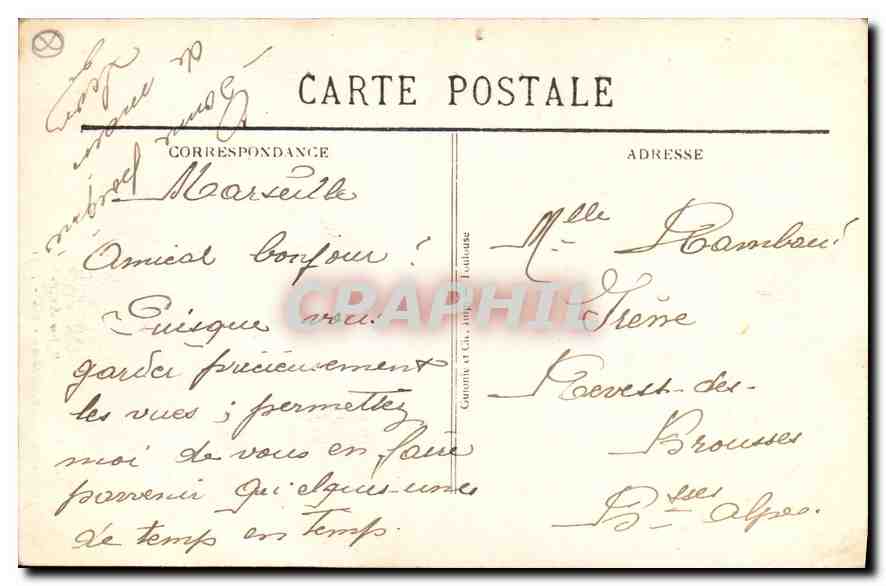 CARTE POSTALE
CORRESPONDANCE
Marseille
Amical bonjour !
Puisque vous
garder précieusement
les vues ; permettez
moi de vous en faire
parvenir quielques-unes
de temp en temp.
Guionie et Cie, Imp. Toulouse
ADRESSE
Mlle Rambaud
Irène
Revest-des-
Brousses
Bsses Alpes.
CRAPHIL